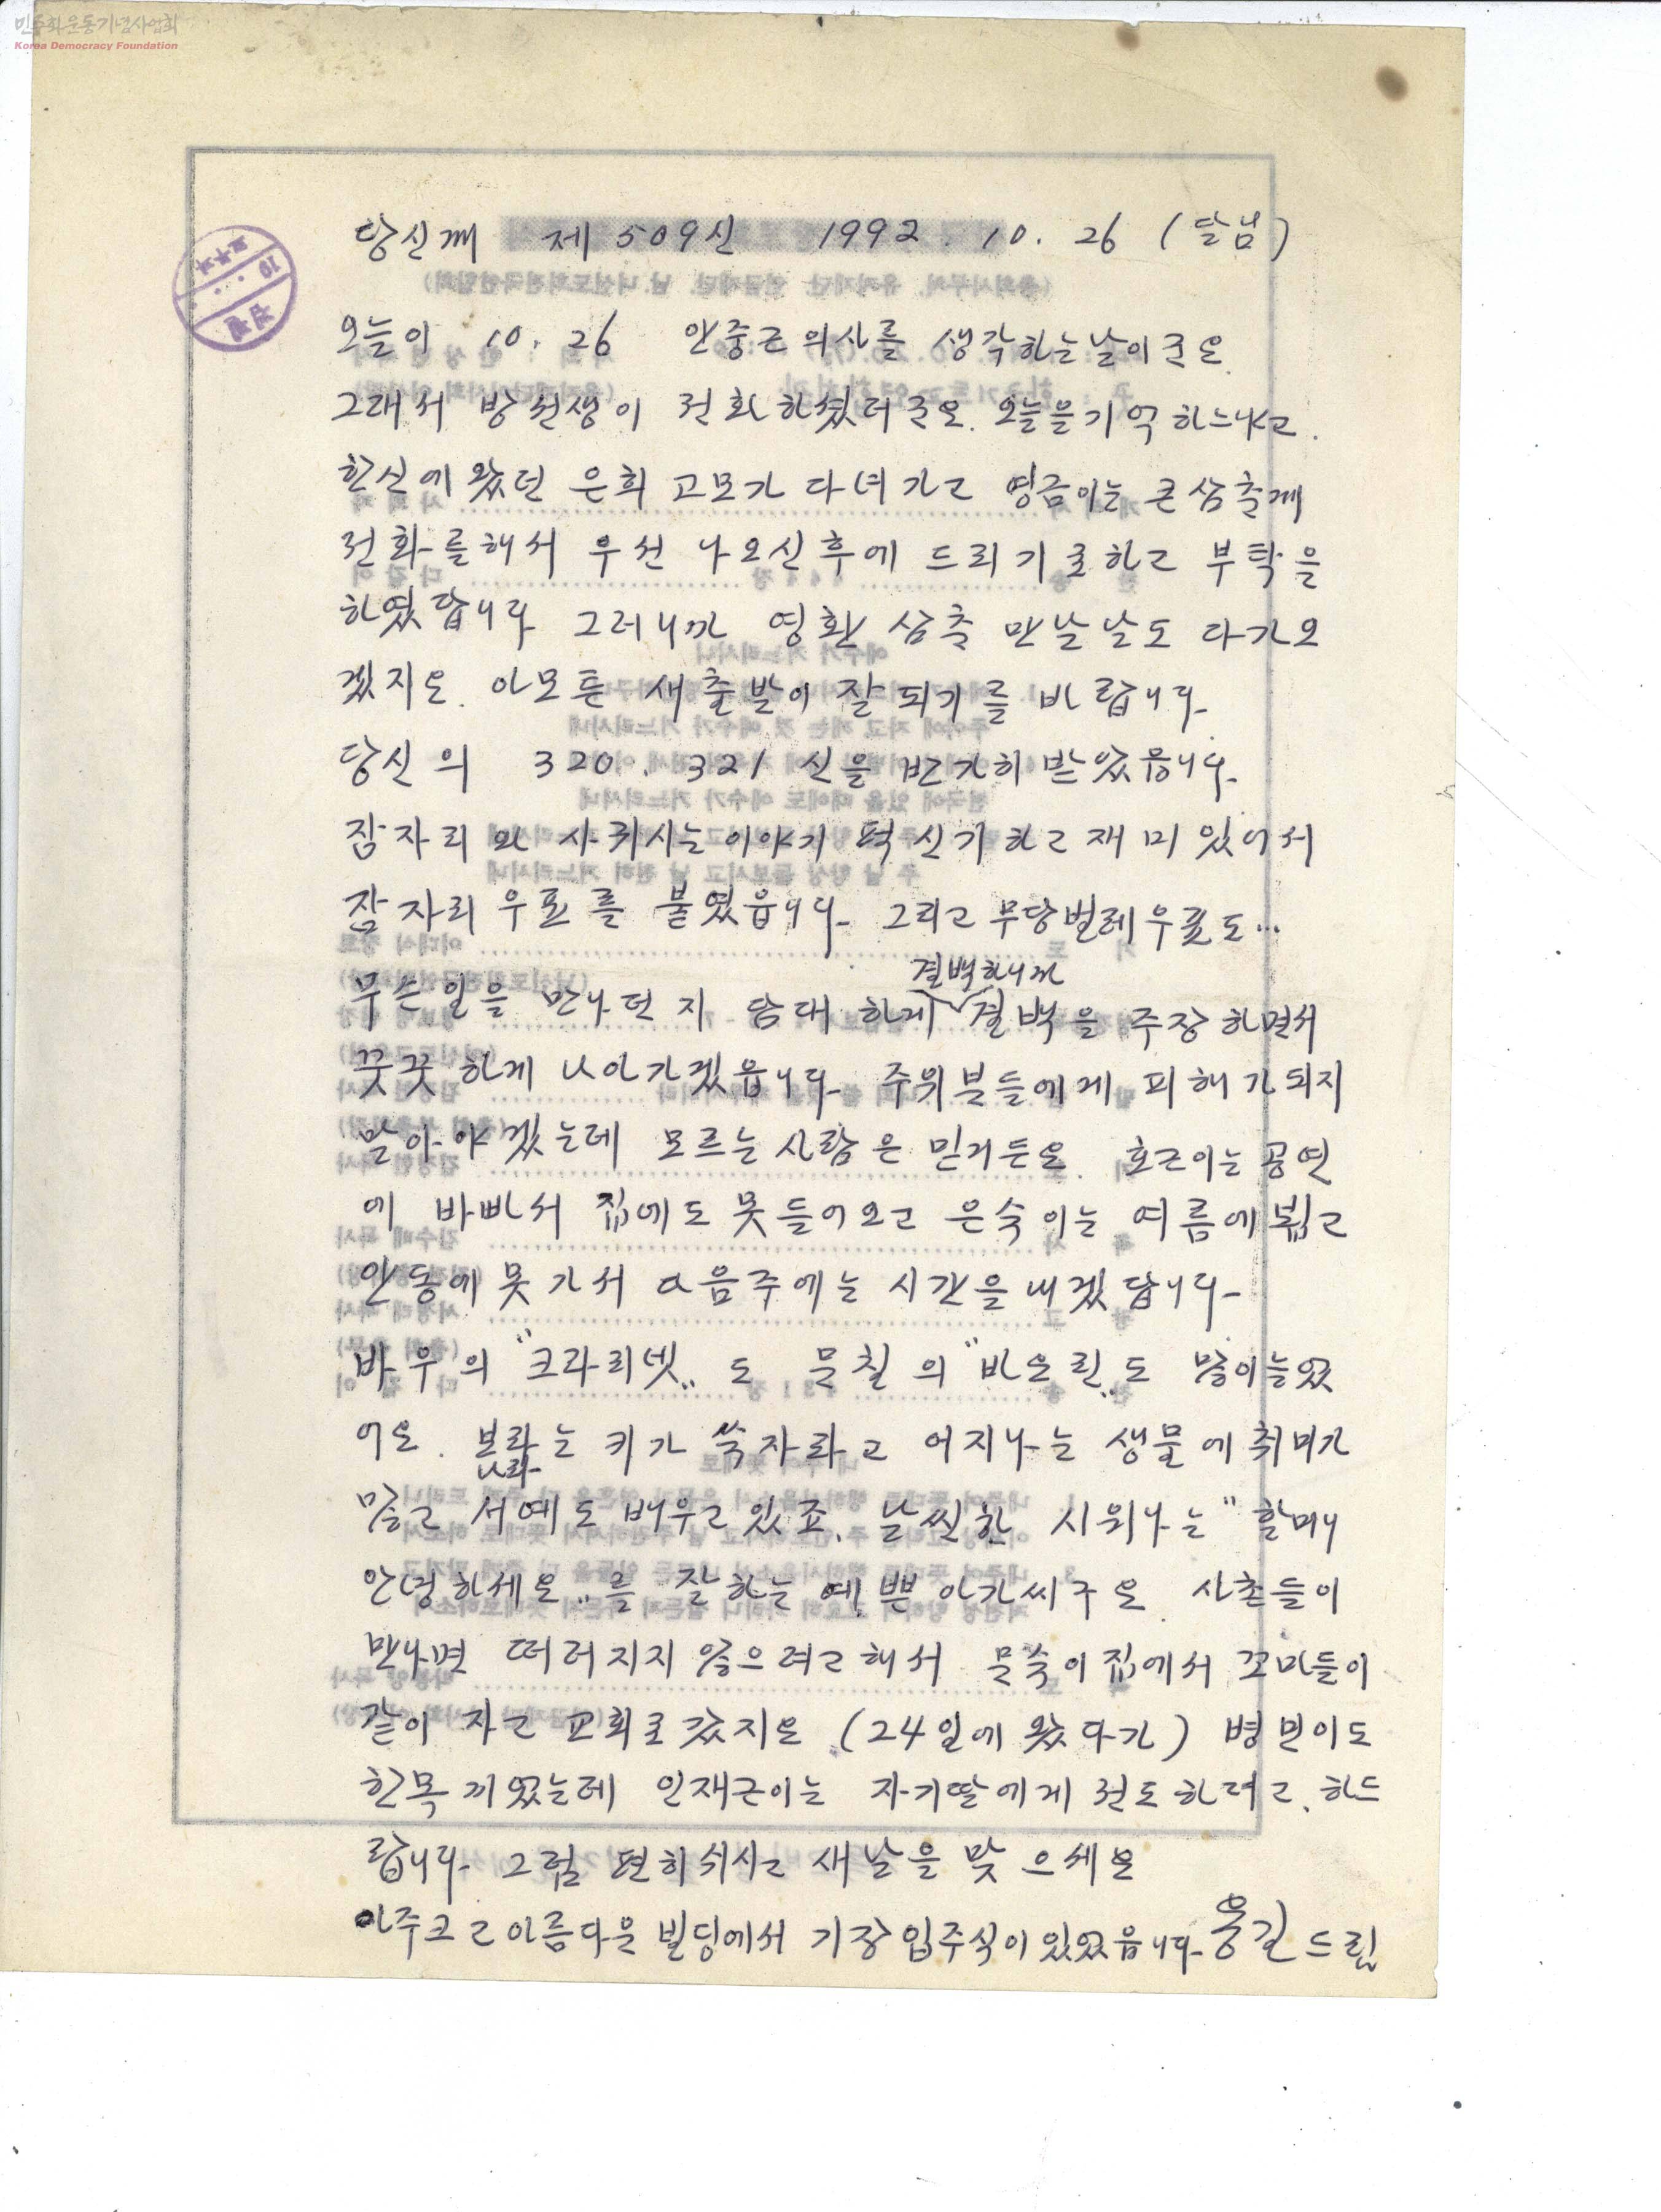 민주화운동기념사업회
Korea Democracy Foundation
당신께 제 509신 1992. 10. 26 (달님)
오늘이 10. 26 안중근의사를 생각하는날이군요.
그래서 방선생이 전화하셨더군요. 오늘을기억하느냐고.
한신에왔던 은희 고모가 다녀가고 영금이는 큰삼촌께
전화를해서 우선 나오신후에 드리기로하고 부탁을
하였답니다 그러니까 영환 삼촌 만날날도 다가오
겠지요. 아모튼 새출발이 잘되기를 바랍니다.
당신의 320. 321 신을 반가히받았읍니다.
잠자리와 사귀시는이야기 퍽신기하고재미있어서
잠자리우표를 붙였읍니다. 그리고 무당벌레우표도...
결백하니까
무슨일을 만나던지 담대하게 결백을 주장하면서
꿋꿋하게 나아가겠읍니다. 주위분들에게 피해가되지
말아야겠는데 모르는사람은 믿거든요. 호근이는공연
에 바빠서 집에도못들어오고 은숙이는 여름에뵙고
안동에못가서 다음주에는 시간을내겠답니다.
바우의 "크라리넷"도 문칠의 "바요린"도 많이늘었
어요. 보라는 키가 쑥자라고 어지나는 생물에취미가
나라
많고 서예도배우고있죠. 날씬한 시위나는 "할머니
안녕하세요"를 잘하는예쁜아가씨구요. 사촌들이
만나면 떠러지지않으려고해서 문숙이집에서꼬마들이
같이 자고 교회로갔지요 (24일에왔다가) 병민이도
한몫끼었는데 인재근이는 자기딸에게전도하려고, 하드
랍니다. 그럼 편히쉬시고 새날을맞으세요
아주크고아름다운빌딩에서 기장입주식이있었읍니다. 용길드림